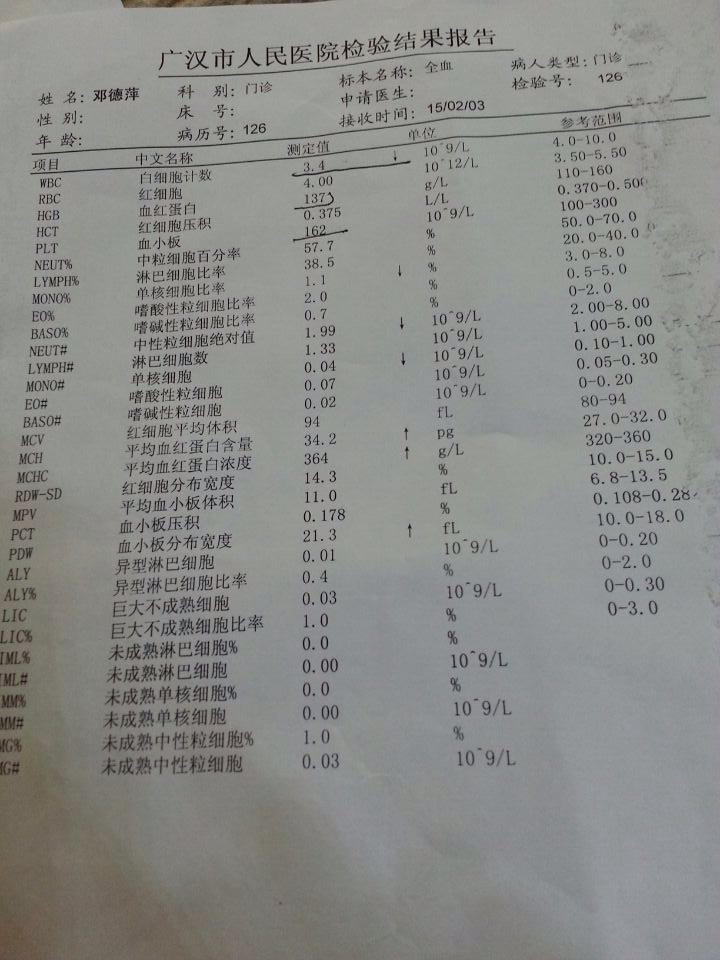 广汉市人民医院检验结果报告
姓 名: 邓德萍 科 别: 门诊 标本名称: 全血 病人类型: 门诊
性 别: 床 号: 申请医生: 检验号: 126
年 龄: 病历号: 126 接收时间: 15/02/03
项目 中文名称 测定值 单位 参考范围
WBC 白细胞计数 3.4 ↓ 10^9/L 4.0-10.0
RBC 红细胞 4.00 10^12/L 3.50-5.50
HGB 血红蛋白 137 g/L 110-160
HCT 红细胞压积 0.375 L/L 0.370-0.500
PLT 血小板 162 10^9/L 100-300
NEUT% 中粒细胞百分率 57.7 % 50.0-70.0
LYMPH% 淋巴细胞比率 38.5 % 20.0-40.0
MONO% 单核细胞比率 1.1 ↓ % 3.0-8.0
EO% 嗜酸性粒细胞比率 2.0 % 0.5-5.0
BASO% 嗜碱性粒细胞比率 0.7 % 0-2.0
NEUT# 中性粒细胞绝对值 1.99 ↓ 10^9/L 2.00-8.00
LYMPH# 淋巴细胞数 1.33 10^9/L 1.00-5.00
MONO# 单核细胞 0.04 ↓ 10^9/L 0.10-1.00
EO# 嗜酸性粒细胞 0.07 10^9/L 0.05-0.30
BASO# 嗜碱性粒细胞 0.02 10^9/L 0-0.20
MCV 红细胞平均体积 94 fL 80-94
MCH 平均血红蛋白含量 34.2 ↑ pg 27.0-32.0
MCHC 平均血红蛋白浓度 364 ↑ g/L 320-360
RDW-SD 红细胞分布宽度 14.3 % 10.0-15.0
MPV 平均血小板体积 11.0 fL 6.8-13.5
PCT 血小板压积 0.178 % 0.108-0.28
PDW 血小板分布宽度 21.3 ↑ fL 10.0-18.0
ALY 异型淋巴细胞 0.01 10^9/L 0-0.20
ALY% 异型淋巴细胞比率 0.4 % 0-2.0
LIC 巨大不成熟细胞 0.03 10^9/L 0-0.30
LIC% 巨大不成熟细胞比率 1.0 % 0-3.0
IML% 未成熟淋巴细胞% 0.0 %
IML# 未成熟淋巴细胞 0.00 10^9/L
IMM% 未成熟单核细胞% 0.0 %
MM# 未成熟单核细胞 0.00 10^9/L
MG% 未成熟中性粒细胞% 1.0 %
MG# 未成熟中性粒细胞 0.03 10^9/L